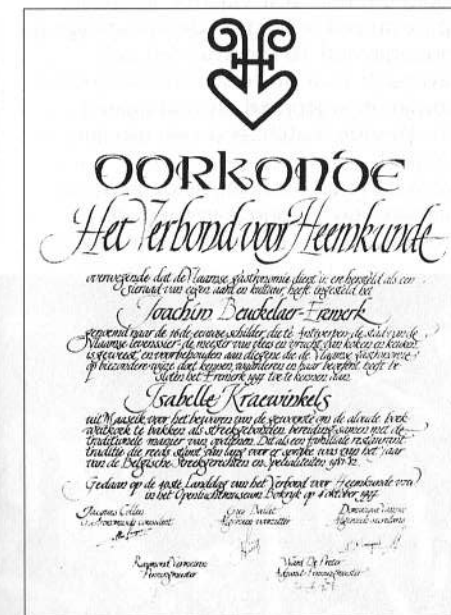 OORKONDE
Het Verbond voor Heemkunde
overwegende dat de Vlaamse gastronomie dient in ere hersteld als een
sieraad van eigen aard en kultuur, heeft ingesteld het
Joachim Beuckelaer-Eremerk
genoemd naar de 16de eeuwse schilder, die te Antwerpen, de stad van de
Vlaamse levenssier, de meester van vlees en vrucht, van koken en keuken
is geweest, en voorbehouden aan diegene die de Vlaamse gastronomie
op biezondere wijze dort kennen, waarderen en haar beoefent, heeft be-
sloten het Eremerk 1997 toe te kennen aan
Isabelle Kraewinkels
uit Maaseik voor het bewaren van de gewoonte om de aloude boek-
weitkoek te bakken als streekgebonden bereiding samen met de
traditionele manier van opdienen. Dit als een familiale restaurant
traditie die reeds stamt van lang voor er sprake was van het jaar
van de Belgische Streekgerechten en Specialiteiten
Gedaan op de 40ste Landdag van het Verbond voor Heemkunde vzw
in het Openluchtmuseum Bokrijk op 4 oktober 1997.
Jacques Collen
voorzitter
Raymond Vermeiren
Penningmeester
Ward De Preter
Adjunct-Penningmeester